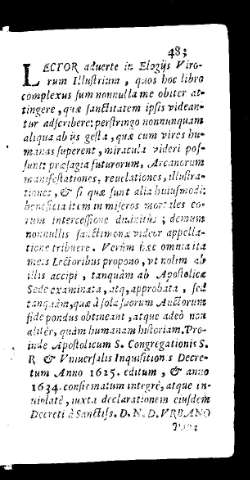 483
LECTOR aduerte in Elogijs Viro-
rum Illustrium, quos hoc libro
complexus sum nonnulla me obiter at-
tingere, quæ sanctitatem ipsis videan-
tur adscribere: perstringo nonnunquam
aliqua ab iis gesta, quæ cum vires hu-
manas superent, miracula videri pos-
sunt: præsagia futurorum, Arcanorum
manifestationes, reuelationes, illustra-
tiones, & si quæ sunt alia huiusmodi:
beneficia item in miseros mortales eo-
rum intercessione diuinitùs; demum
nonnullis sanctimoniæ videor appella-
tione tribuere. Verùm hæc omnia ita
meis Lectoribus propono, vt nolim ab
illis accipi, tanquàm ab Apostolica
Sede examinata, atq; approbata, sed
tanquàm, quæ à sola suorum Auctorum
fide pondus obtineant, atque adeò non
alitèr, quàm humanam historiam. Pro-
inde Apostolicum S. Congregationis S.
R & Vniuersalis Inquisitionis Decre-
tum Anno 1625. editum, & anno
1634. confirmatum integrè, atque in-
uiolatè, iuxta declarationem eiusdem
Decreti à Sanctiss. D. N. D. VRBANO